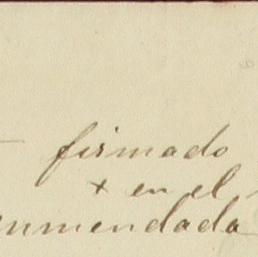 firmado
+ en el
enmendada